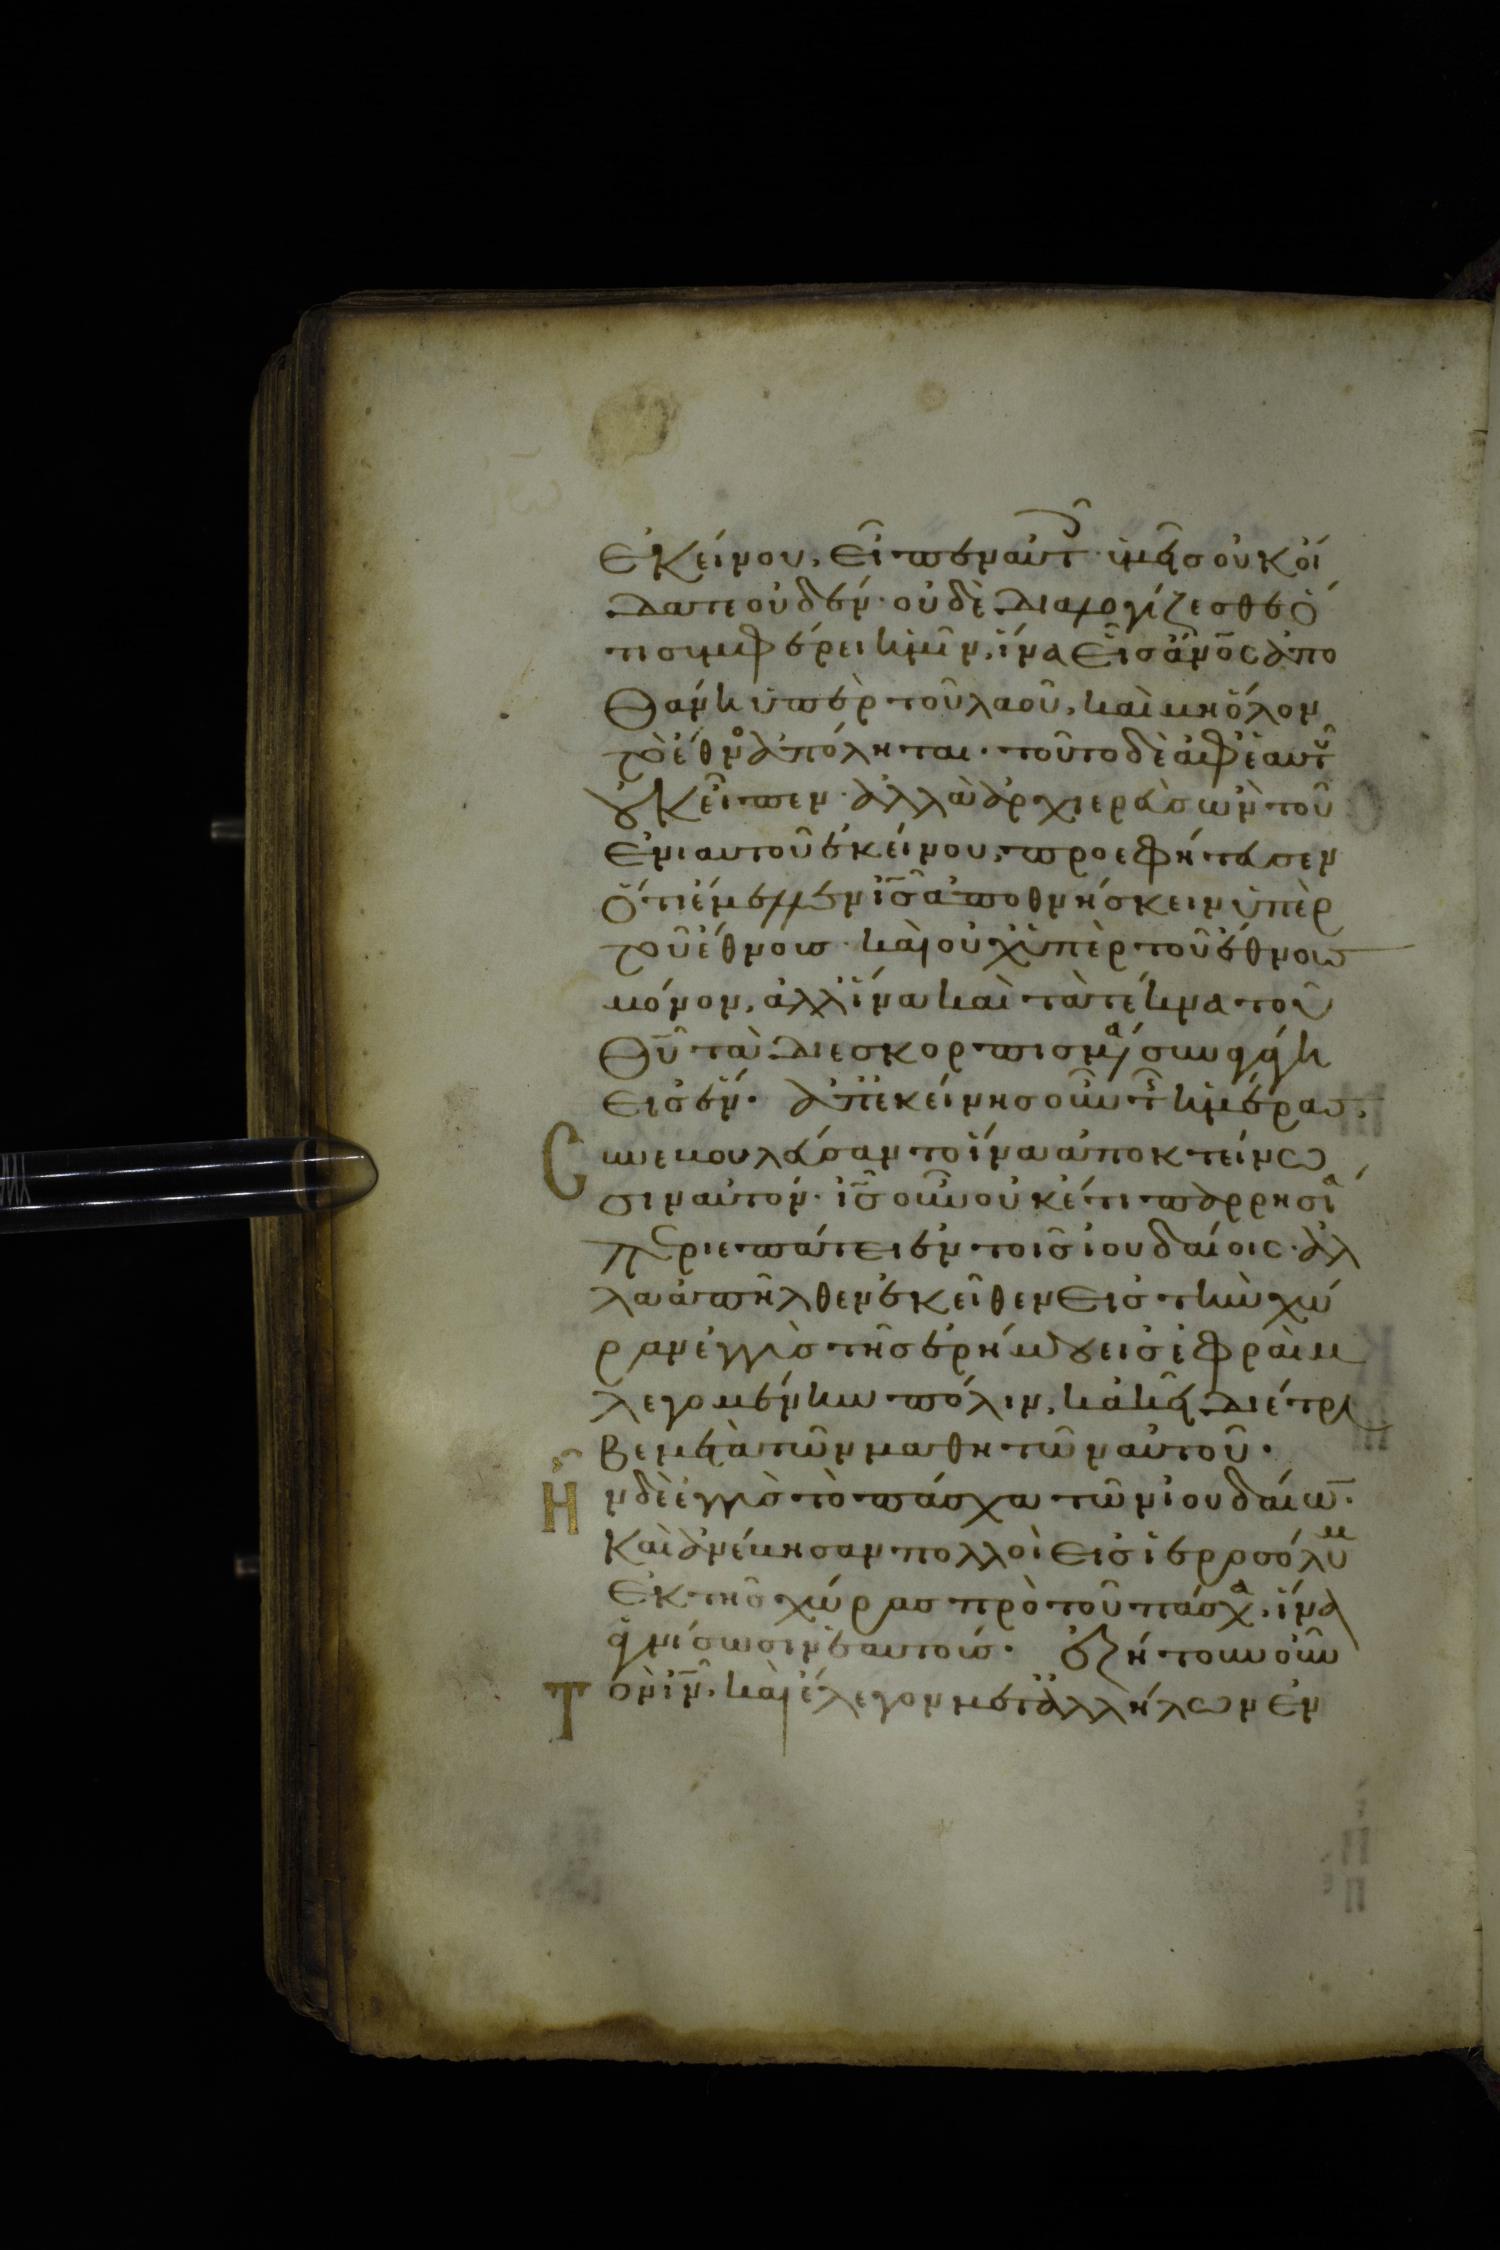 ἐκείνου, εἶπεν αὐτοῖς· ὑμεῖς οὐκ οἴ
δατε οὐδέν· οὐδὲ διαλογίζεσθε ὅ
τι συμφέρει ἡμῖν, ἵνα εἷς ἄνος ἀπο
θάνη ὑπὲρ τοῦ λαοῦ, καὶ μὴ ὅλον
τὸ ἔθνος ἀπόληται· τοῦτο δὲ ἀφ' ἑαυτοῦ
οὐκ εἶπεν· ἀλλὰ ἀρχιερεὺς ὢν τοῦ
ἐνιαυτοῦ ἐκείνου, προεφήτευσεν
ὅτι ἔμελλεν ις ἀποθνήσκειν ὑπὲρ
τοῦ ἔθνους· καὶ οὐχ ὑπὲρ τοῦ ἔθνους
μόνον, ἀλλ' ἵνα καὶ τὰ τέκνα τοῦ
θυ τὰ διεσκορπισμένα συναγάγη
εἰς ἕν· ἀπ' ἐκείνης οὖν τῆς ἡμέρας,
Συνεβουλεύσαντο ἵνα ἀποκτείνω
σιν αὐτόν· ις οὖν οὐκέτι παρρησία
περιεπάτει ἐν τοῖς ἰουδαίοις· ἀλ
λὰ ἀπῆλθεν ἐκεῖθεν εἰς τὴν χώ
ραν ἐγγὺς τῆς ἐρήμου εἰς ἐφραὶμ
λεγομένην πόλιν, κἀκεῖ διέτρι
βεν μετὰ τῶν μαθητῶν αὐτοῦ·
Ἦν δὲ ἐγγὺς τὸ πάσχα τῶν ἰουδαίων·
καὶ ἀνέβησαν πολλοὶ εἰς ἱεροσόλυμ
ἐκ τῆς χώρας πρὸ τοῦ πάσχα, ἵνα
ἁγνίσωσιν ἑαυτούς· ἐζήτουν οὖν
Τὸν ιν, καὶ ἔλεγον μετ' ἀλλήλων ἐν